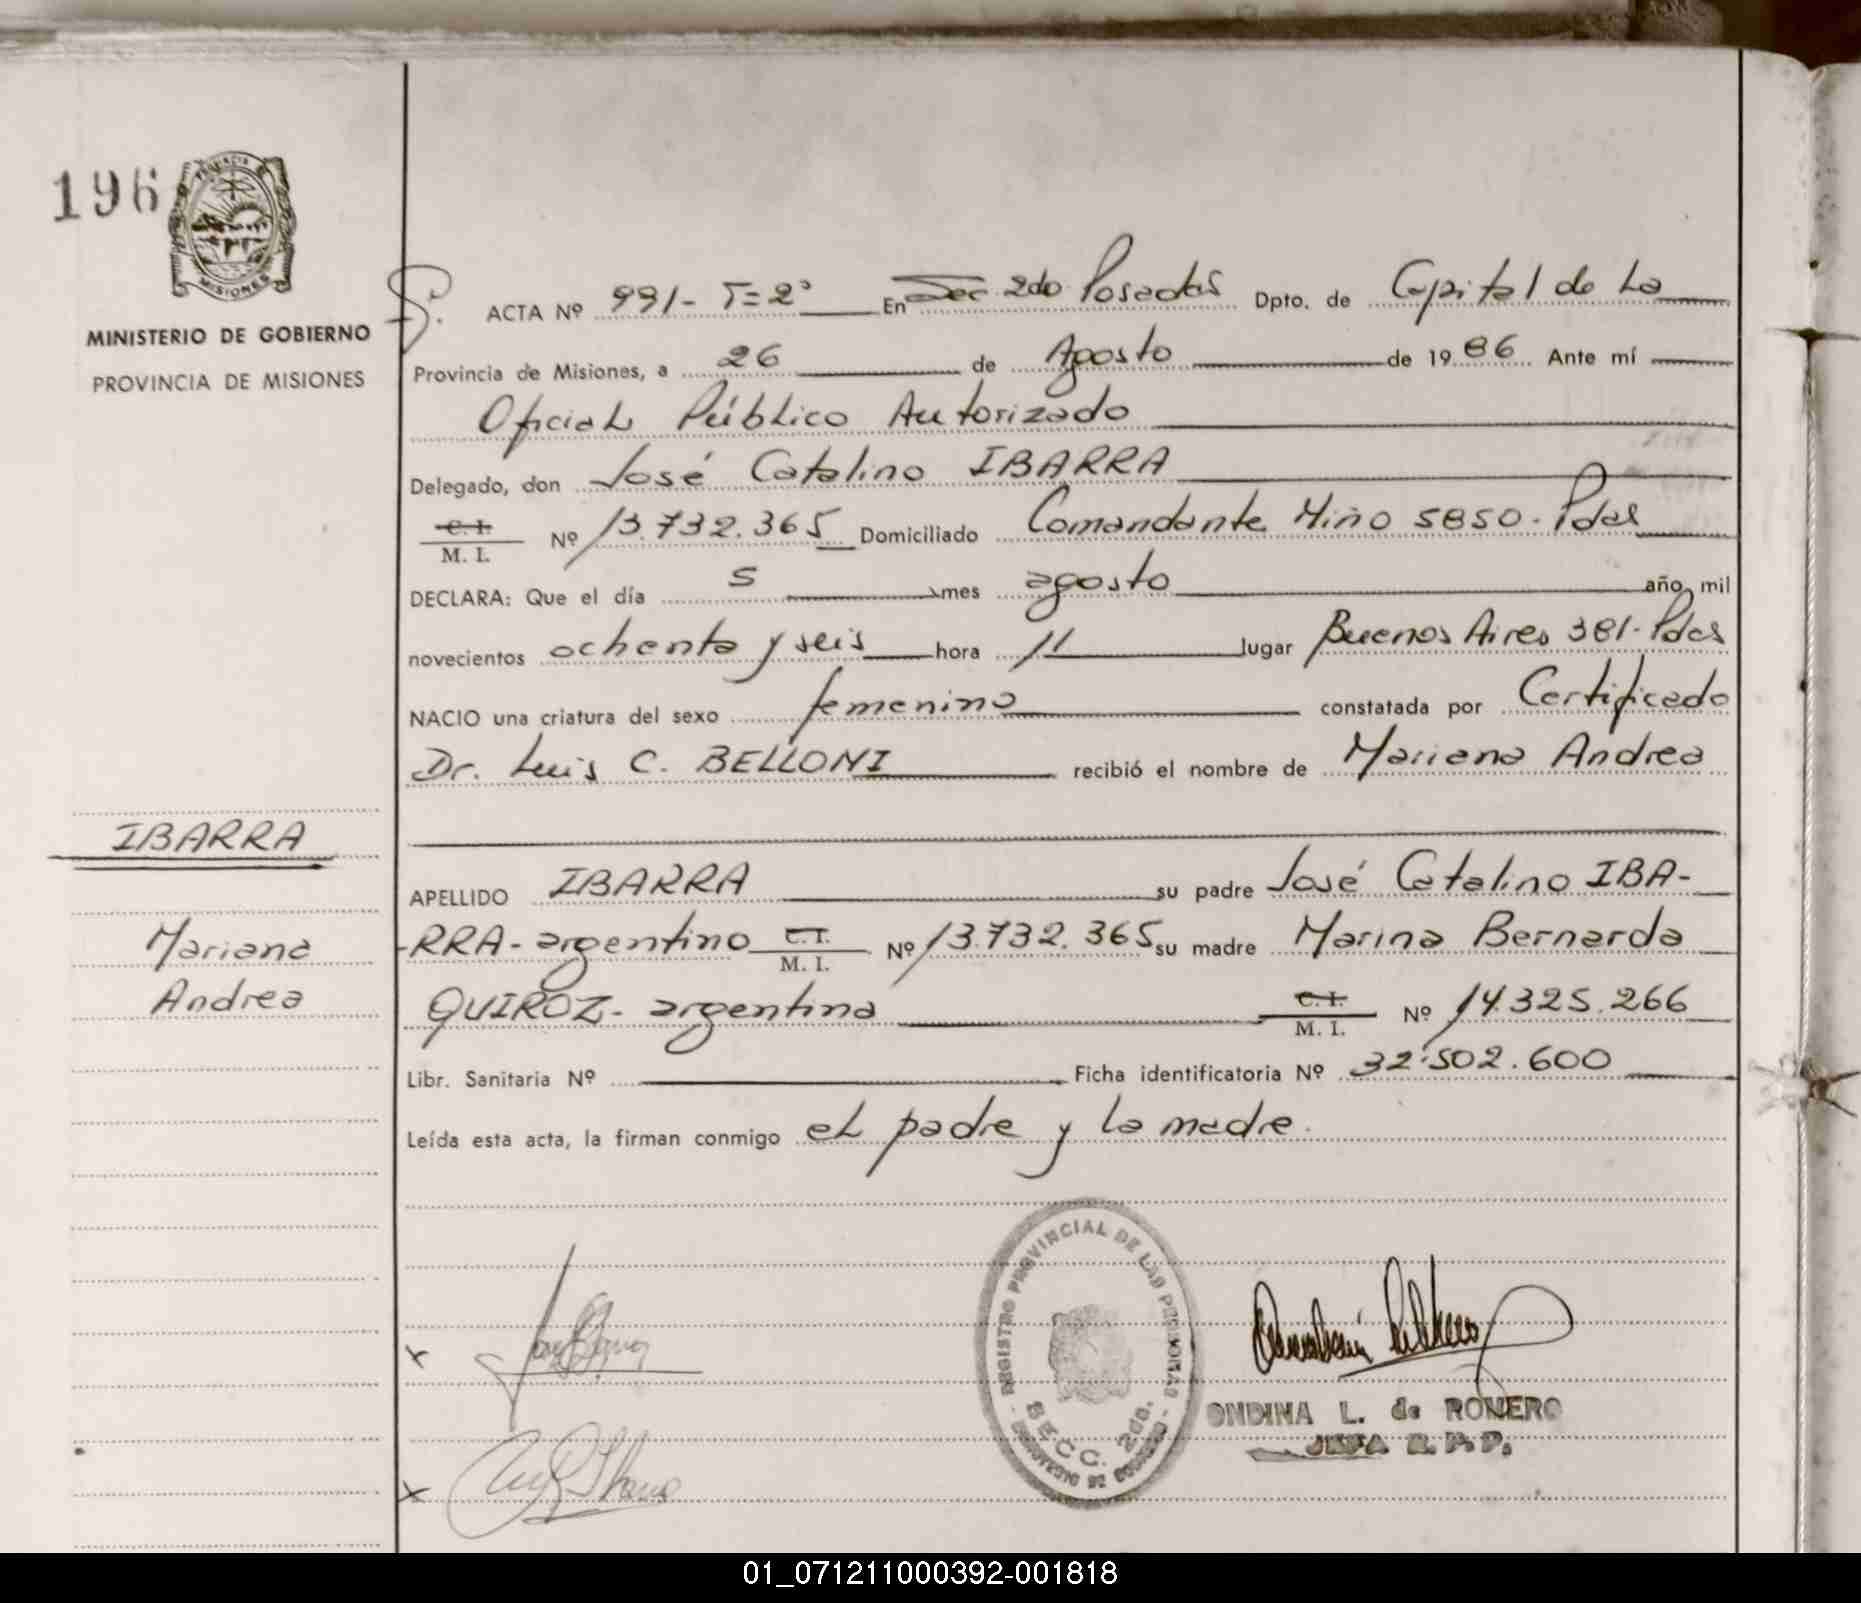 196
MINISTERIO DE GOBIERNO
PROVINCIA DE MISIONES
ACTA Nº 991- T=2º En Sec 2do Posadas Dpto. de Capital de La
Provincia de Misiones, a 26 de Agosto de 1986 Ante mí
Oficial Público Autorizado
Delegado, don José Catalino IBARRA
C. I.
M. I. Nº 13.732.365 Domiciliado Comandante Miño 5850- Pdas
DECLARA: Que el día 5 mes agosto año mil
novecientos ochenta y seis hora 11 lugar Buenos Aires 381- Pdas
NACIO una criatura del sexo femenino constatada por Certificado
Dr. Luis C. BELLONI recibió el nombre de Mariana Andrea
IBARRA
Mariana
Andrea
APELLIDO IBARRA su padre José Catalino IBA-
-RRA- argentino C. I. M. I. Nº 13.732.365 su madre Marina Bernarda
QUIROZ- argentina C. I. M. I. Nº 14.325.266
Libr. Sanitaria Nº Ficha identificatoria Nº 32.502.600
Leída esta acta, la firman conmigo el padre y la madre.
REGISTRO PROVINCIAL DE LAS PERSONAS
SECC. 2da.
ONDINA L. de ROMERO
JEFA R. P. P.
01_071211000392-001818